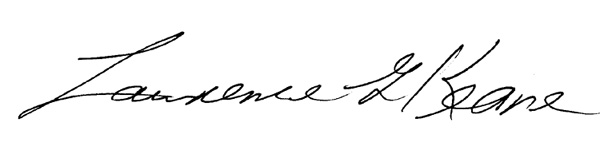 Lawrence G Keane